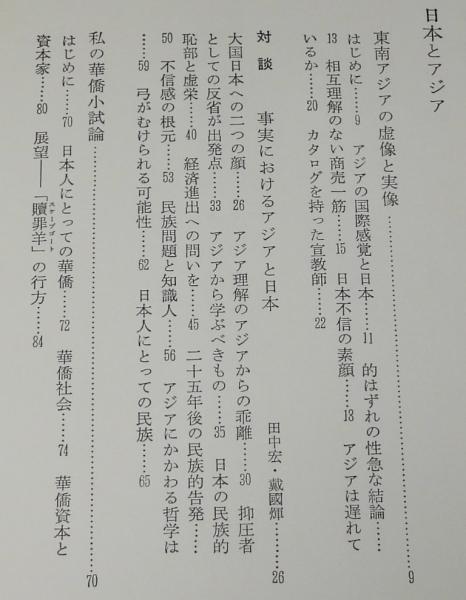 日本とアジア
東南アジアの虚像と実像……………………………………9
はじめに……9　アジアの国際感覚と日本……11　的はずれの性急な結論……
13　相互理解のない商売一筋……15　日本不信の素顔……18　アジアは遅れて
いるか……20　カタログを持った宣教師……22
対談　事実におけるアジアと日本　田中宏・戴國煇…………26
大国日本への二つの顔……26　アジア理解のアジアからの乖離……30　抑圧者
としての反省が出発点……33　アジアから学ぶべきもの……35　日本の民族的
恥部と虚栄……40　経済進出への問いを……45　二十五年後の民族的告発……
50　不信感の根元……53　民族問題と知識人……56　アジアにかかわる哲学は
……59　弓がむけられる可能性……62　日本人にとっての民族……65
私の華僑小試論……………………………………70
はじめに……70　日本人にとっての華僑……72　華僑社会……74　華僑資本と
資本家……80　展望――「贖罪羊スケープゴート」の行方……84